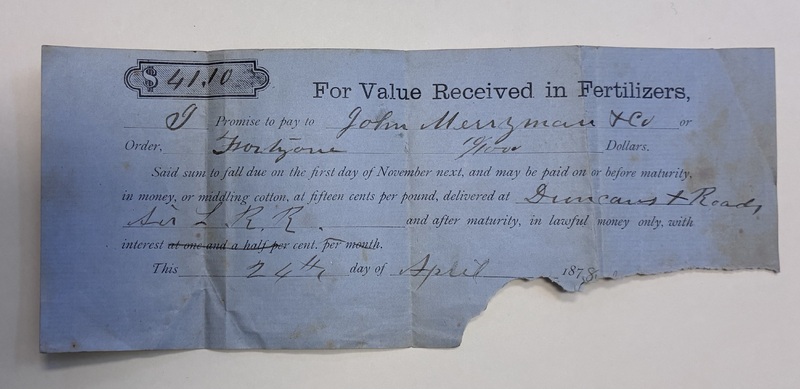 $ 41.10
For Value Received in Fertilizers,
I Promise to pay to John Merryman & Co or
Order, Fortyone 10/100 Dollars.
Said sum to fall due on the first day of November next, and may be paid on or before maturity,
in money, or middling cotton, at fifteen cents per pound, delivered at Duncans + Roads
Air L R. R. and after maturity, in lawful money only, with
interest at one and a half per cent. per month.
This 24th day of April 1878